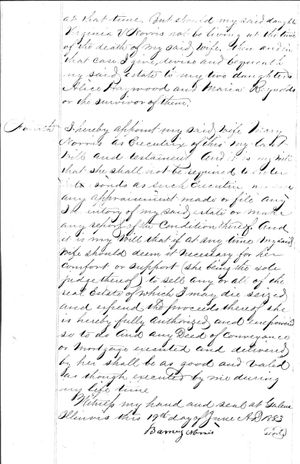 at that time. But should my said daughter
Virginia V Norris not be living at the time
of the death of my said Wife, then and in
that case I give, devise and bequeath
my said Estate to my two daughters
Alice Haywood and Maria Reynolds
or the survivor of them.
Fourth I hereby appoint my said Wife
Norris as Executrix of this my last
Will and testament And it is my will
that she shall not be required to enter
bonds as such Executrix
any appraisement made or file any
Inventory of my said estate or make
any report of the Condition thereof And
it is my Will that if at any time my said
Wife should deem it necessary for her
Comfort or Support (she being the sole
judge thereof) to sell any or all of the
real Estate of which I may die seized
and expend the proceeds thereof she
is hereby fully authorized and empowered
so to do And any Deed of Conveyance
or Mortgage executed and delivered
by her shall be as good and valid
as though executed by me during
my life time
Witness my hand and seal at Galena
Illinois this 19th day of June A.D. 1883
Barney Norris